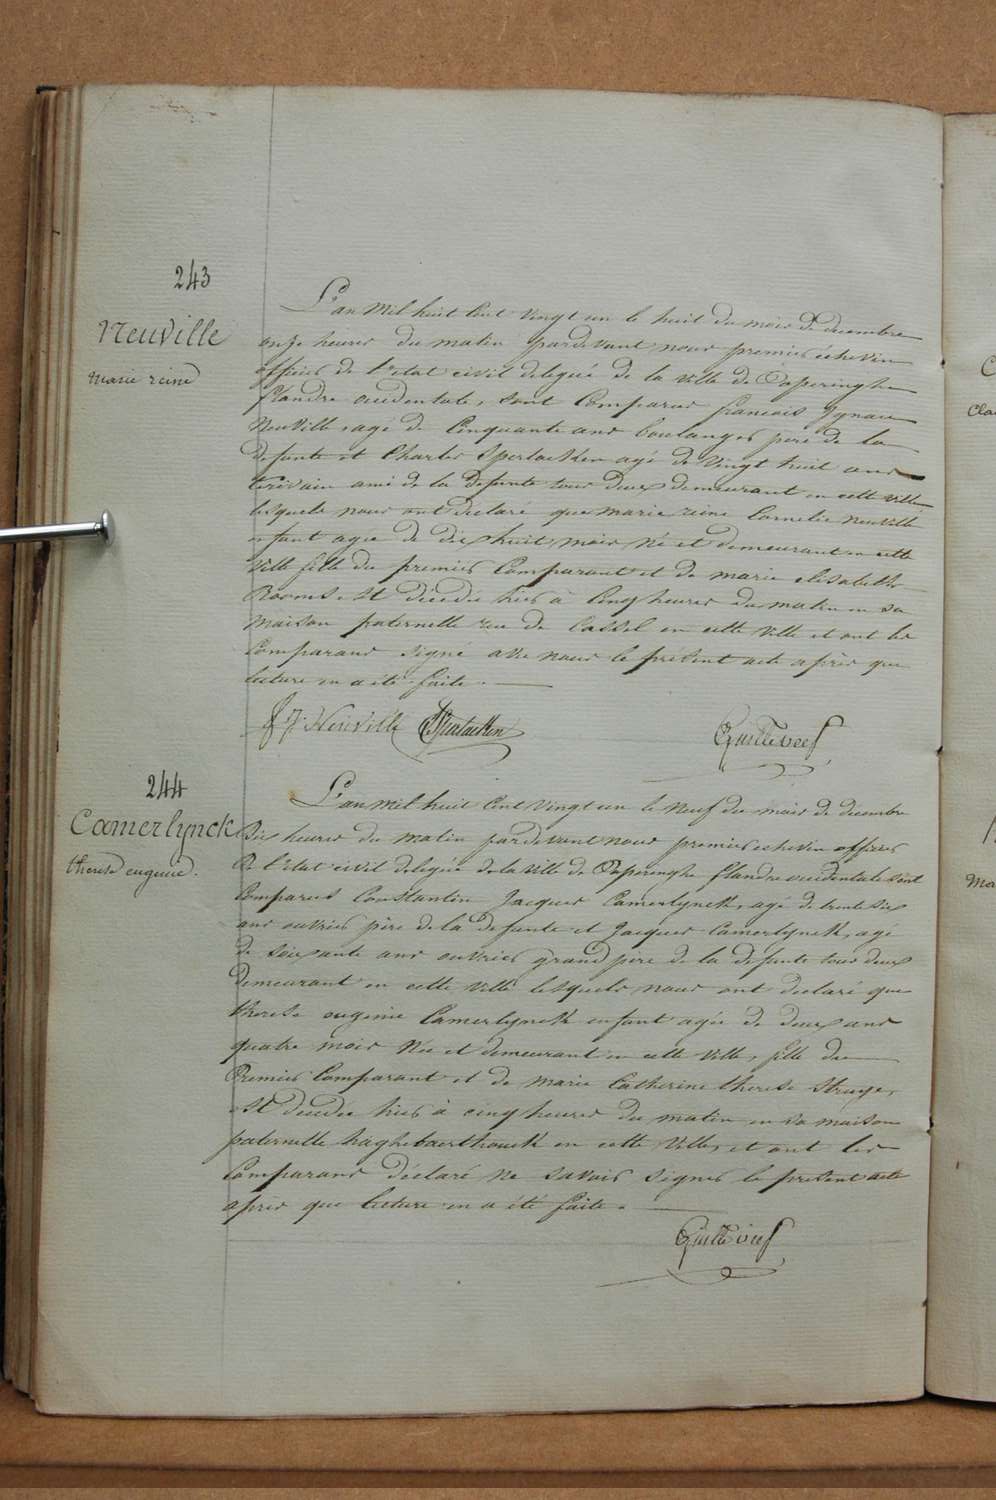 243
Neuville
marie reine
L'an Mil huit Cent Vingt un le huit du mois de decembre
onze heures du matin pardevant nous premier échevin
officier de l'etat civil delegué de la ville de Poperinghe
flandre occidentale, sont Comparus francois Ignace
Neuville, agé de Cinquante ans boulanger père de la
defunte et Charles Sperlaeken agé de Vingt huit ans
Ecrivain ami de la defunte tous deux demeurant en cette ville
lesquels nous ont declaré que marie reine Cornelie neuville
enfant agée de dix huit mois née et demeurant en cette
ville fille du premier Comparant et de marie elisabeth
Rooms, est décedée hier à Cinq heures du matin en sa
maison paternelle rue de Cassel en cette ville et ont les
Comparans signé avec nous le présent acte après que
lecture en a été faite.
f J. Neuville
244
Camerlynck
therese eugenie.
L'an mil huit Cent Vingt un le Neuf du mois de decembre
Dix heures du matin pardevant nous premier echevin officier
de l'etat civil delegué de la ville de Poperinghe flandre occidentale sont
Comparus Constantin Jacques Camerlynck, agé de trente six
ans ouvrier père de la defunte et Jacques Camerlynck, agé
de soixante ans ouvrier grand pere de la defunte tous deux
demeurant en cette ville lesquels nous ont declaré que
therese eugenie Camerlynck enfant agée de deux ans
quatre mois Née et demeurant en cette ville, fille du
Premier Comparant et de marie Catherine therese Struye,
est decedée hier à cinq heures du matin en sa maison
paternelle haghebaerthouck en cette ville, et ont les
Comparans déclaré ne savoir signer le present acte
après que lecture en a été faite.